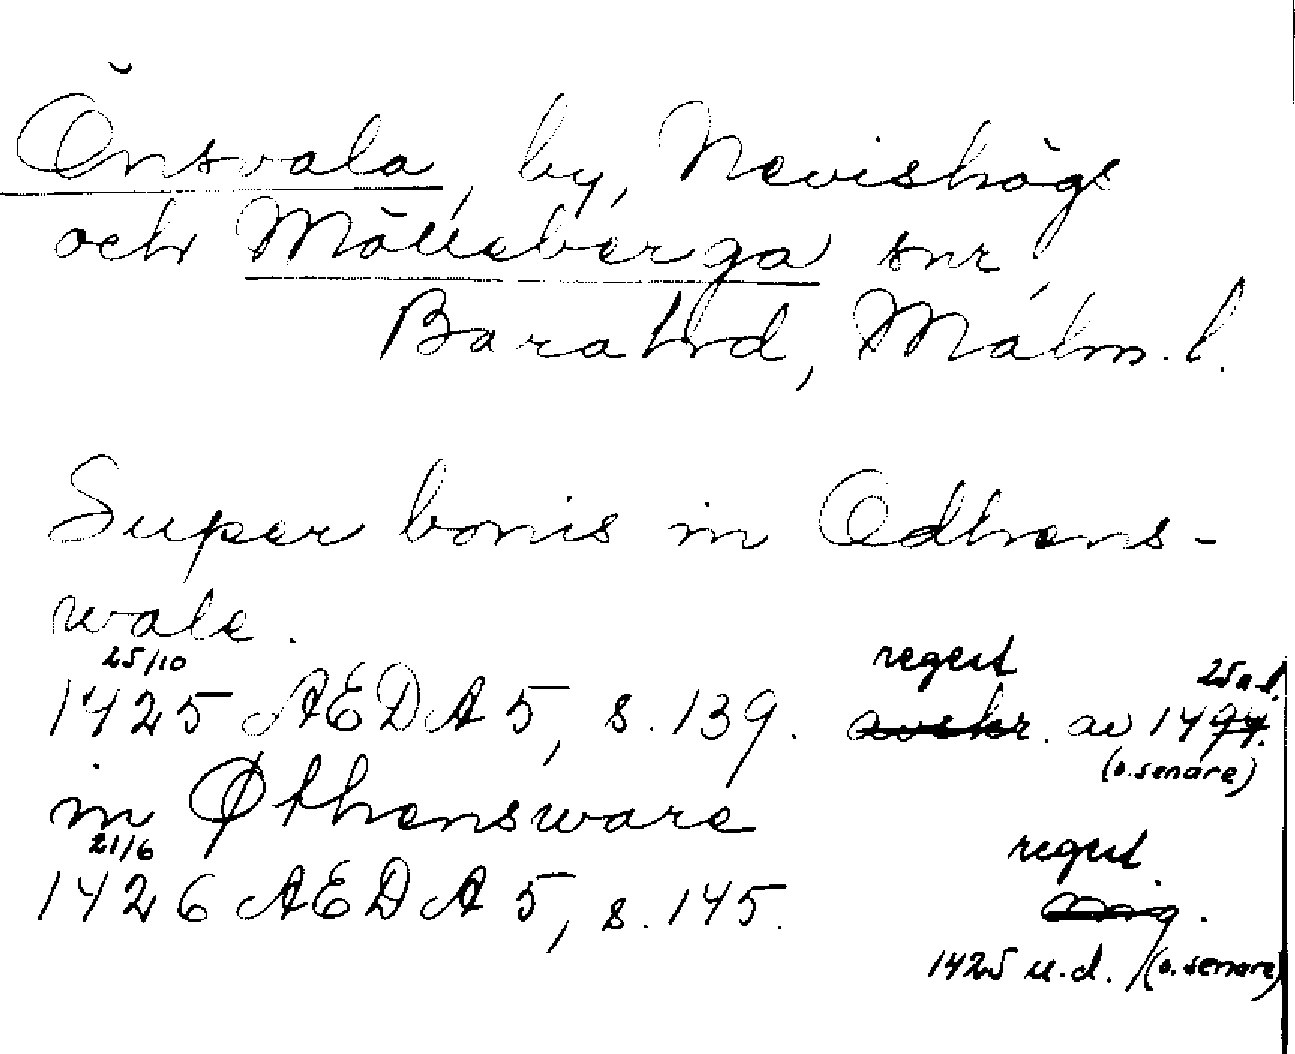 Önsvala, by, Nevishögs
och Mölleberga snr
Bara hrd, Malm. l.
Super bonis in Odhens-
wale.
25/10
regest
1425 AEDA 5, s. 139. avskr. av 1494.
(o. senare)
in Øthensware
21/6
regest
1426 AEDA 5, s. 145.
1425 u.d. /(o. senare)